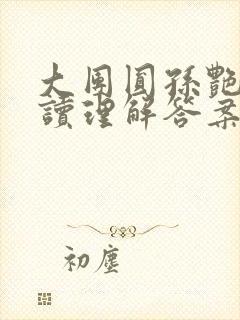 大團圓孫艷
讀理解答案
初塵